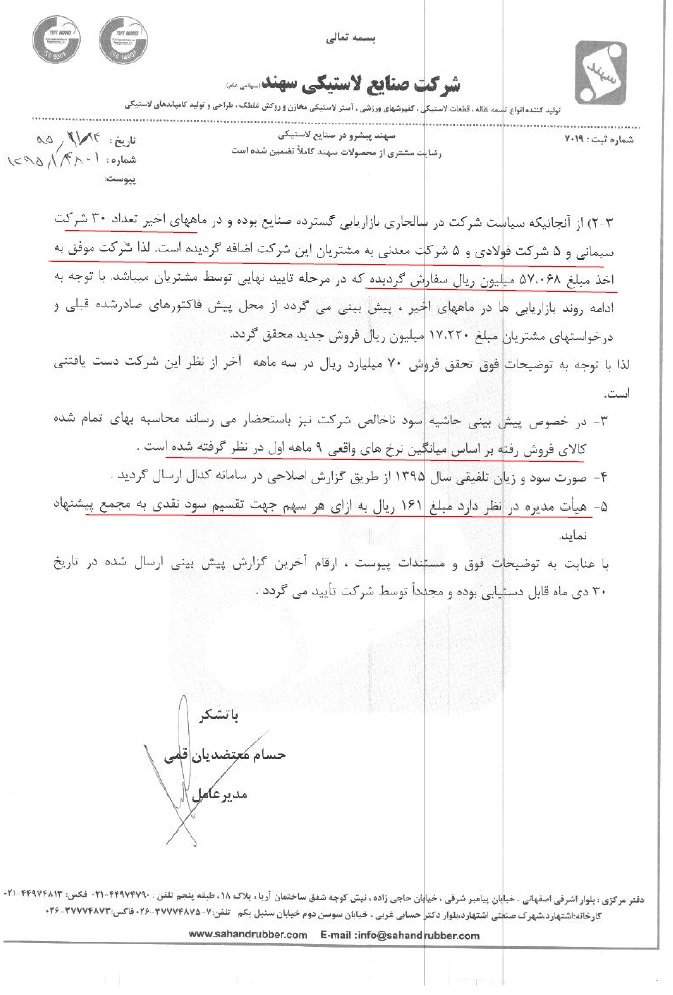 بسمه تعالی
شرکت صنایع لاستیکی سهند (سهامی عام)
تولید کننده انواع تسمه نقاله ، قطعات لاستیکی ، کفپوشهای ورزشی ، آستر لاستیکی مخازن و روکش غلطک ، طراحی و تولید کامپاندهای لاستیکی
سهند
شماره ثبت : ۷۰۱۹
سهند پیشرو در صنایع لاستیکی
رضایت مشتری از محصولات سهند کاملاً تضمین شده است
تاریخ :
شماره :
پیوست :
۲-۳) از آنجائیکه سیاست شرکت در سالجاری بازاریابی گسترده صنایع بوده و در ماههای اخیر تعداد ۳۰ شرکت
سیمانی و ۵ شرکت فولادی و ۵ شرکت معدنی به مشتریان این شرکت اضافه گردیده است. لذا شرکت موفق به
اخذ مبلغ ۵۷.۰۶۸ میلیون ریال سفارش گردیده که در مرحله تایید نهایی توسط مشتریان میباشد. با توجه به
ادامه روند بازاریابی ها در ماههای اخیر ، پیش بینی می گردد از محل پیش فاکتورهای صادرشده قبلی و
درخواستهای مشتریان مبلغ ۱۷.۲۲۰ میلیون ریال فروش جدید محقق گردد.
لذا با توجه به توضیحات فوق تحقق فروش ۷۰ میلیارد ریال در سه ماهه آخر از نظر این شرکت دست یافتنی
است.
۳- در خصوص پیش بینی حاشیه سود ناخالص شرکت نیز باستحضار می رساند محاسبه بهای تمام شده
کالای فروش رفته بر اساس میانگین نرخ های واقعی ۹ ماهه اول در نظر گرفته شده است .
۴- صورت سود و زیان تلفیقی سال ۱۳۹۵ از طریق گزارش اصلاحی در سامانه کدال ارسال گردید .
۵- هیأت مدیره در نظر دارد مبلغ ۱۶۱ ریال به ازای هر سهم جهت تقسیم سود نقدی به مجمع پیشنهاد
نماید.
با عنایت به توضیحات فوق و مستندات پیوست ، ارقام آخرین گزارش پیش بینی ارسال شده در تاریخ
۳۰ دی ماه قابل دستیابی بوده و مجدداً توسط شرکت تأیید می گردد .
باتشکر
حسام معتضدیان قمی
مدیرعامل
دفتر مرکزی : بلوار اشرفی اصفهانی ، خیابان پیامبر شرقی ، خیابان حاجی زاده ، نبش کوچه شفق ساختمان آریا ، پلاک ۱۸، طبقه پنجم تلفن : ۴۴۹۷۴۷۹۰-۰۲۱ فکس: ۴۴۹۷۴۸۱۳-۰۲۱
کارخانه:اشتهارد،شهرک صنعتی اشتهارد،بلوار دکتر حسابی غربی ، خیابان سوسن دوم خیابان سنبل یکم تلفن:۷-۳۷۷۷۴۸۷۵-۰۲۶ فاکس:۳۷۷۷۴۸۷۳-۰۲۶
www.sahandrubber.com E-mail :info@sahandrubber.com